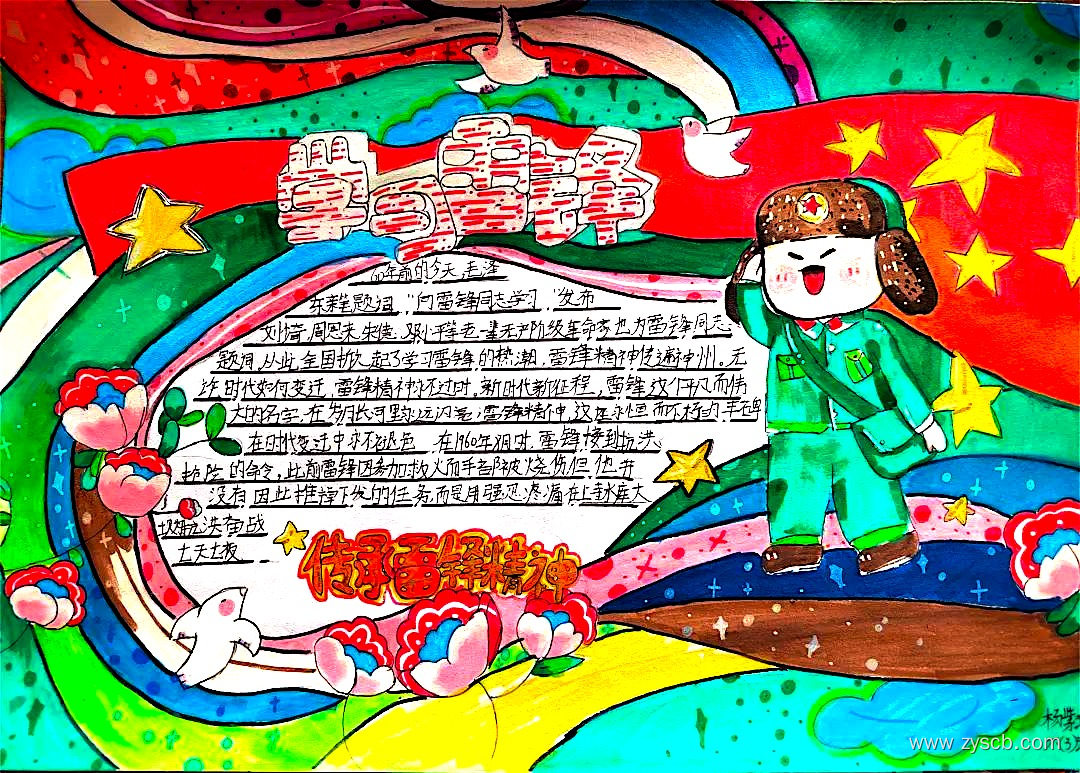 学习雷锋
60年前的今天,毛泽
东亲笔题词"向雷锋同志学习"发布
刘少奇 周恩来 朱德 邓小平等老一辈无产阶级革命家也为雷锋同志
题词,从此,全国掀起了学习雷锋的热潮,雷锋精神传遍神州。无
论时代如何变迁,雷锋精神永不过时。新时代新征程,雷锋这个平凡而伟
大的名字,在岁月长河里永远闪亮,雷锋精神,这座永恒而不朽的丰碑
在时代变迁中永不褪色 在1960年8月时,雷锋接到抗洪
抢险的命令,此前雷锋因参加救火而手部被烧伤但他并
没有因此推掉下发的任务而是用强忍疼痛在上寺水库大
坝抗洪奋战
七天七夜
传承雷锋精神
杨紫
www.zyscb.com